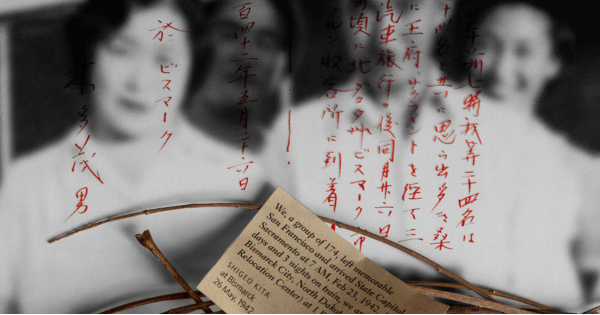 時我等二十四名は
十四名と共に思ひ出多き桑
に王府サクラメントを経て三
汽車旅行の後同月廿六日
に北ダコタ州ビスマーク市
ルン収容所に到着
百四十二年五月二十六日
於 ビスマーク
喜多茂男
We, a group of 174, left memorable
San Francisco and arrived State Capitol
Sacramento at 7 AM, Feb 23, 1942.
days and 3 nights on train, we
Bismarck City, North
Relocation Center) at 1
SHIGEO KITA
at Bismarck
26 May, 1942